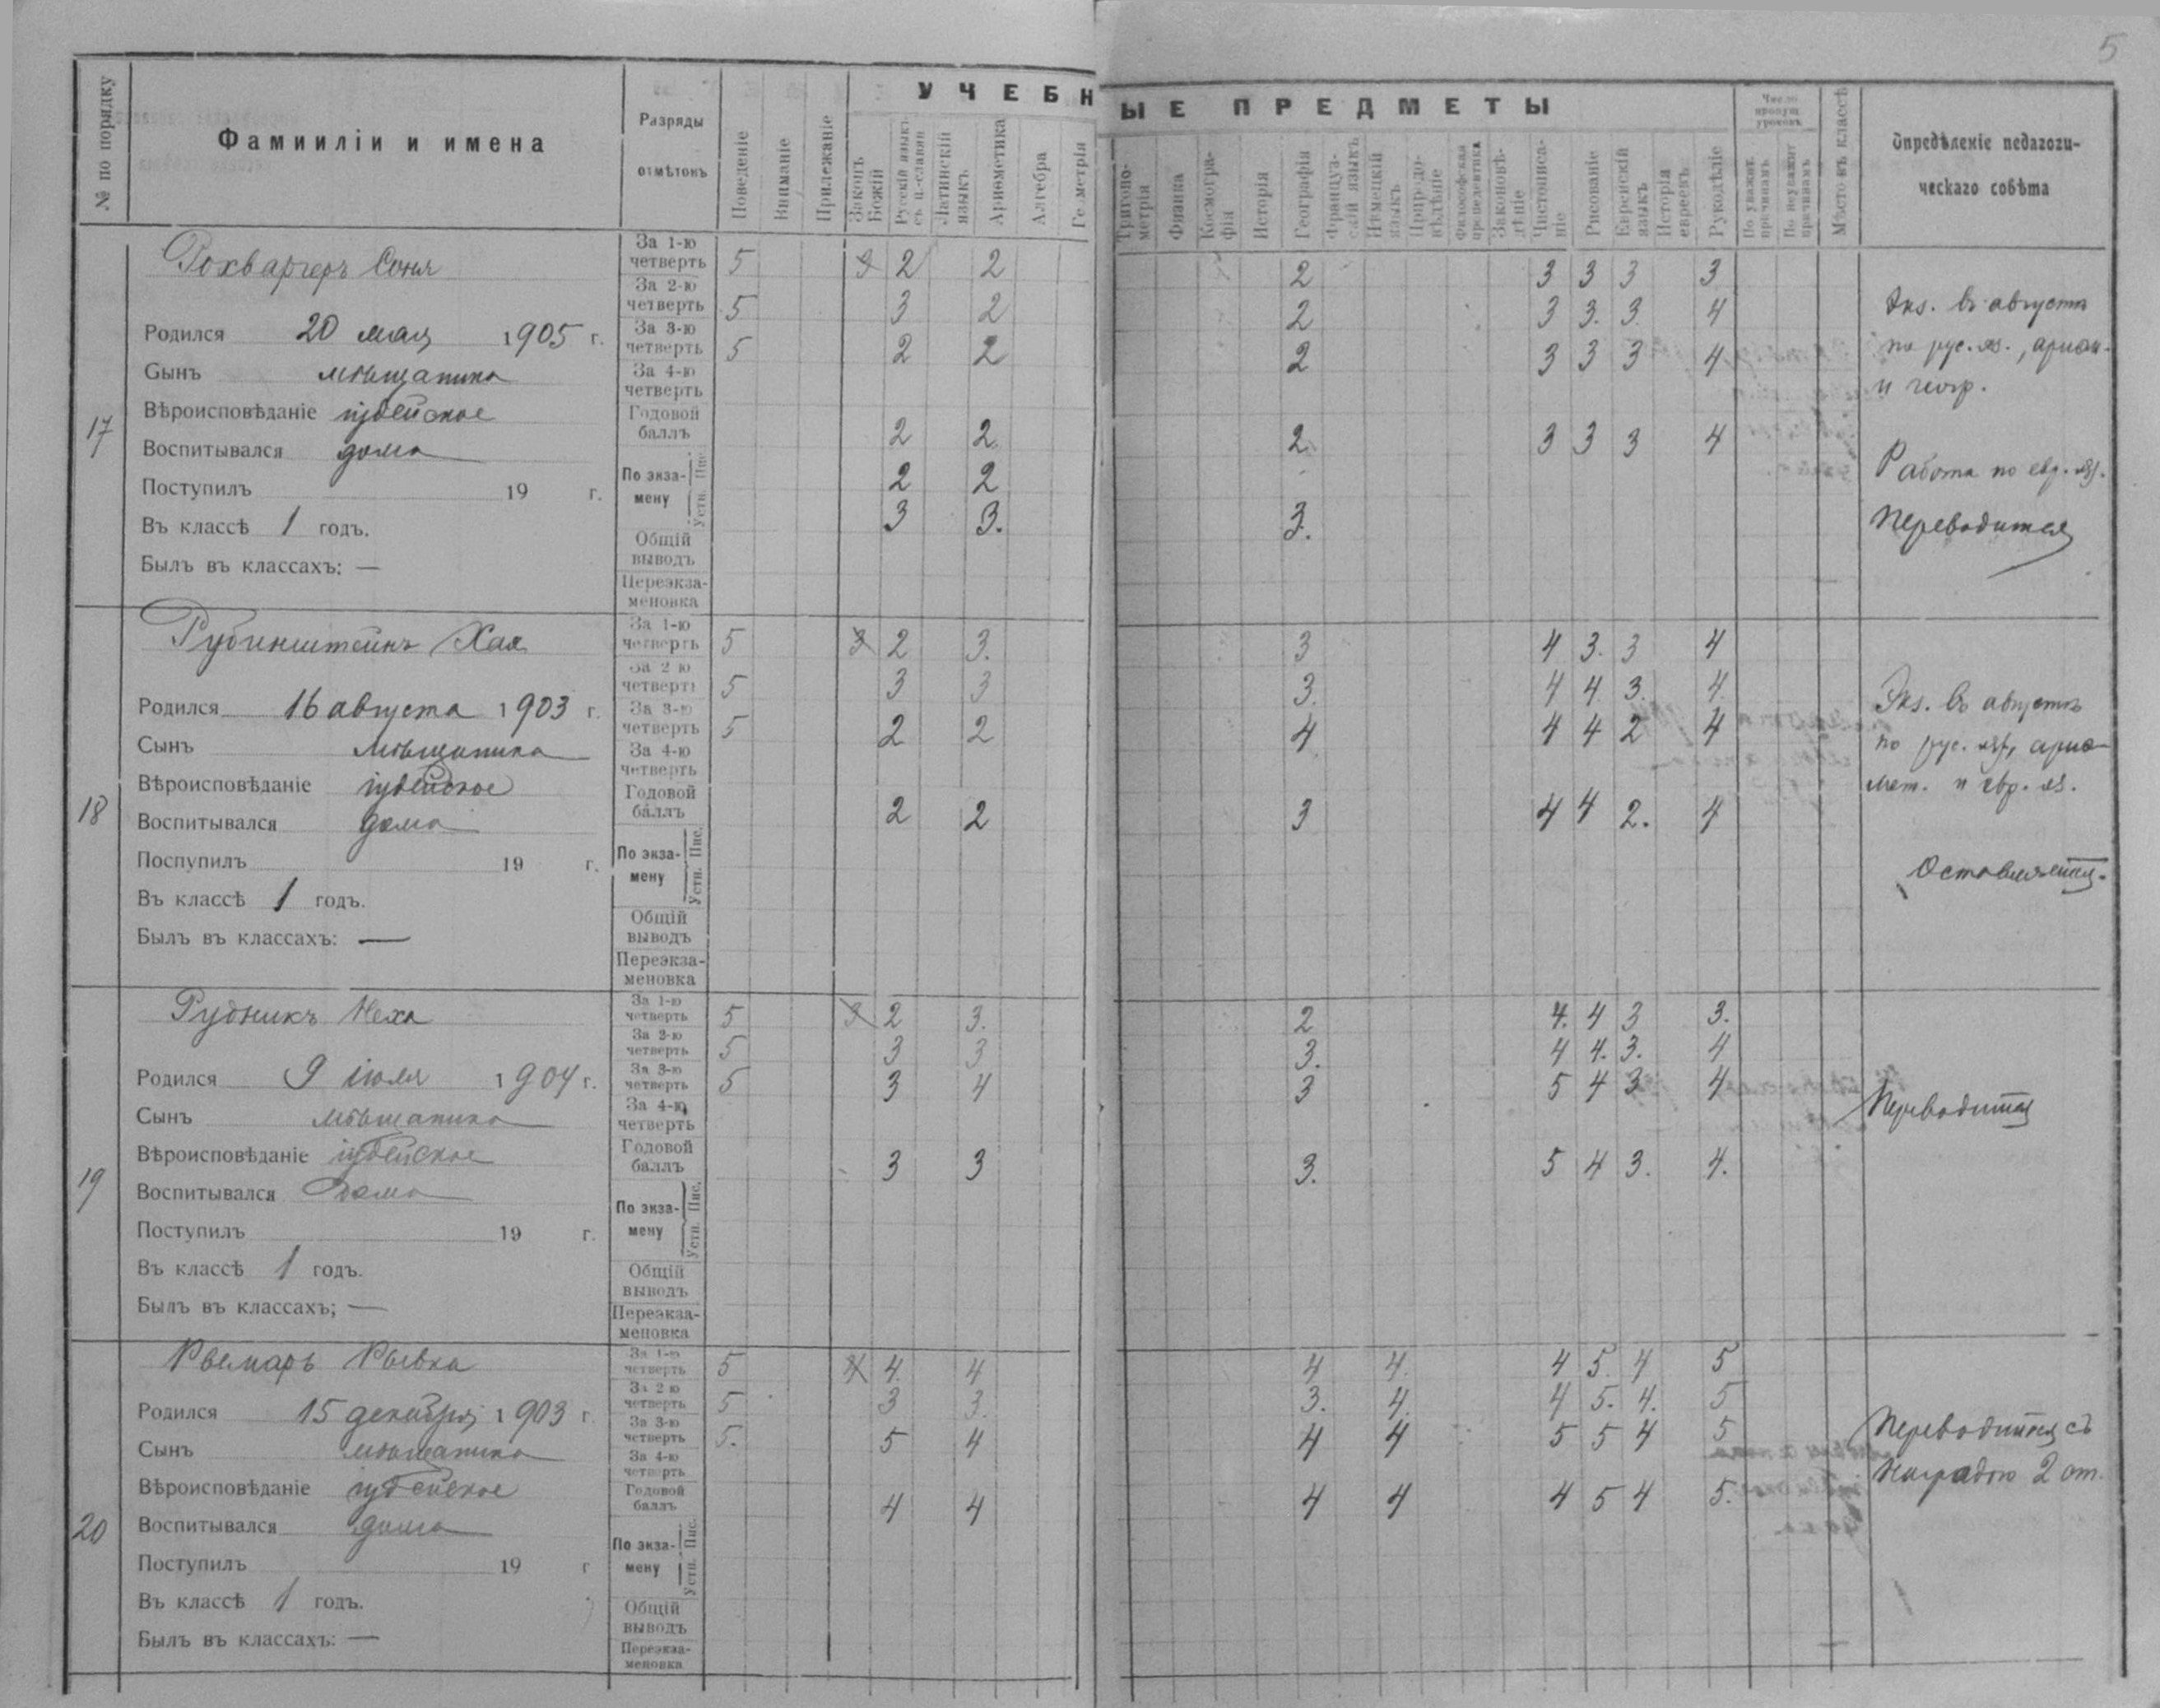 5
УЧЕБНЫЕ ПРЕДМЕТЫ
№ по порядку
Фамииліи и имена
Разряды отмѣтокъ
Поведеніе
Вниманіе
Прилежаніе
Законъ Божій
Русскій языкъ съ ц.-славян
Латинскій языкъ
Ариѳметика
Алгебра
Геометрія
Тригоно-метрія
Физика
Космогра-фія
Исторія
Географія
Француз-скій языкъ
Нѣмецкій языкъ
Природо-вѣдѣніе
Философская пропедевтика
Законовѣ-дѣніе
Чистописа-ніе
Рисованіе
Еврейскій языкъ
Исторія евреевъ
Рукодѣліе
Число пропущ. уроковъ
По уважит. причинамъ
По неуважит причинамъ
Мѣсто въ классѣ
Опредѣленіе педагоги-
ческаго совѣта
17
Рохваргеръ Соня
Родился 20 мая 1905 г.
Сынъ мѣщанина
Вѣроисповѣданіе іудейское
Воспитывался дома
Поступилъ 19 г.
Въ классѣ 1 годъ.
Былъ въ классахъ: —
За 1-ю четверть 5 3 2 2 2 3 3 3 3
За 2-ю четверть 5 3 2 2 3 3. 3. 4
За 3-ю четверть 5 2 2 2 3 3 3 4
За 4-ю четверть
Годовой баллъ 2 2 2 3 3 3 4
По экза-мену Пис. 2 2
Устн. 3 3. 3.
Общій выводъ
Переэкза-меновка
Экз. въ августѣ
по рус. яз., ариѳм.
и геогр.
Работа по евр. яз.
Переводится
18
Рубинштейнъ Хая
Родился 16 августа 1903 г.
Сынъ мѣщанина
Вѣроисповѣданіе іудейское
Воспитывался дома
Поспупилъ 19 г.
Въ классѣ 1 годъ.
Былъ въ классахъ: —
За 1-ю четверть 5 3 2 3. 3 4 3. 3 4
За 2-ю четверть 5 3 3 3. 4 4. 3. 4.
За 3-ю четверть 5 2 2 4 4 4 2 4
За 4-ю четверть
Годовой баллъ 2 2 3 4 4 2. 4
По экза-мену Пис. Устн.
Общій выводъ
Переэкза-меновка
Экз. въ августѣ
по рус. яз., ариѳ-
мет. и евр. яз.
Оставляется.
19
Рудникъ Неха
Родился 9 іюля 1904 г.
Сынъ мѣщанина
Вѣроисповѣданіе іудейское
Воспитывался дома
Поступилъ 19 г.
Въ классѣ 1 годъ.
Былъ въ классахъ; —
За 1-ю четверть 5 3 2 3. 2 4. 4 3 3.
За 2-ю четверть 5 3 3 3. 4 4. 3. 4
За 3-ю четверть 5 3 4 3 5 4 3 4
За 4-ю четверть
Годовой баллъ 3 3 3. 5 4 3. 4.
По экза-мену Пис. Устн.
Общій выводъ
Переэкза-меновка
Переводится
20
Рывка
Родился 15 декабря 1903 г.
Сынъ мѣщанина
Вѣроисповѣданіе іудейское
Воспитывался дома
Поступилъ 19 г
Въ классѣ 1 годъ.
Былъ въ классахъ: —
За 1-ю четверть 5 4 4. 4 4 4. 4 5. 4 5
За 2 ю четверть 5 3 3. 3. 4. 4 5. 4. 5
За 3-ю четверть 5. 5 4 4 4 5 5 4 5
За 4-ю четверть
Годовой баллъ 4 4 4 4 4 5 4 5.
По экза-мену Пис. Устн.
Общій выводъ
Переэкза-меновка
Переводится съ
наградою 2 ст.